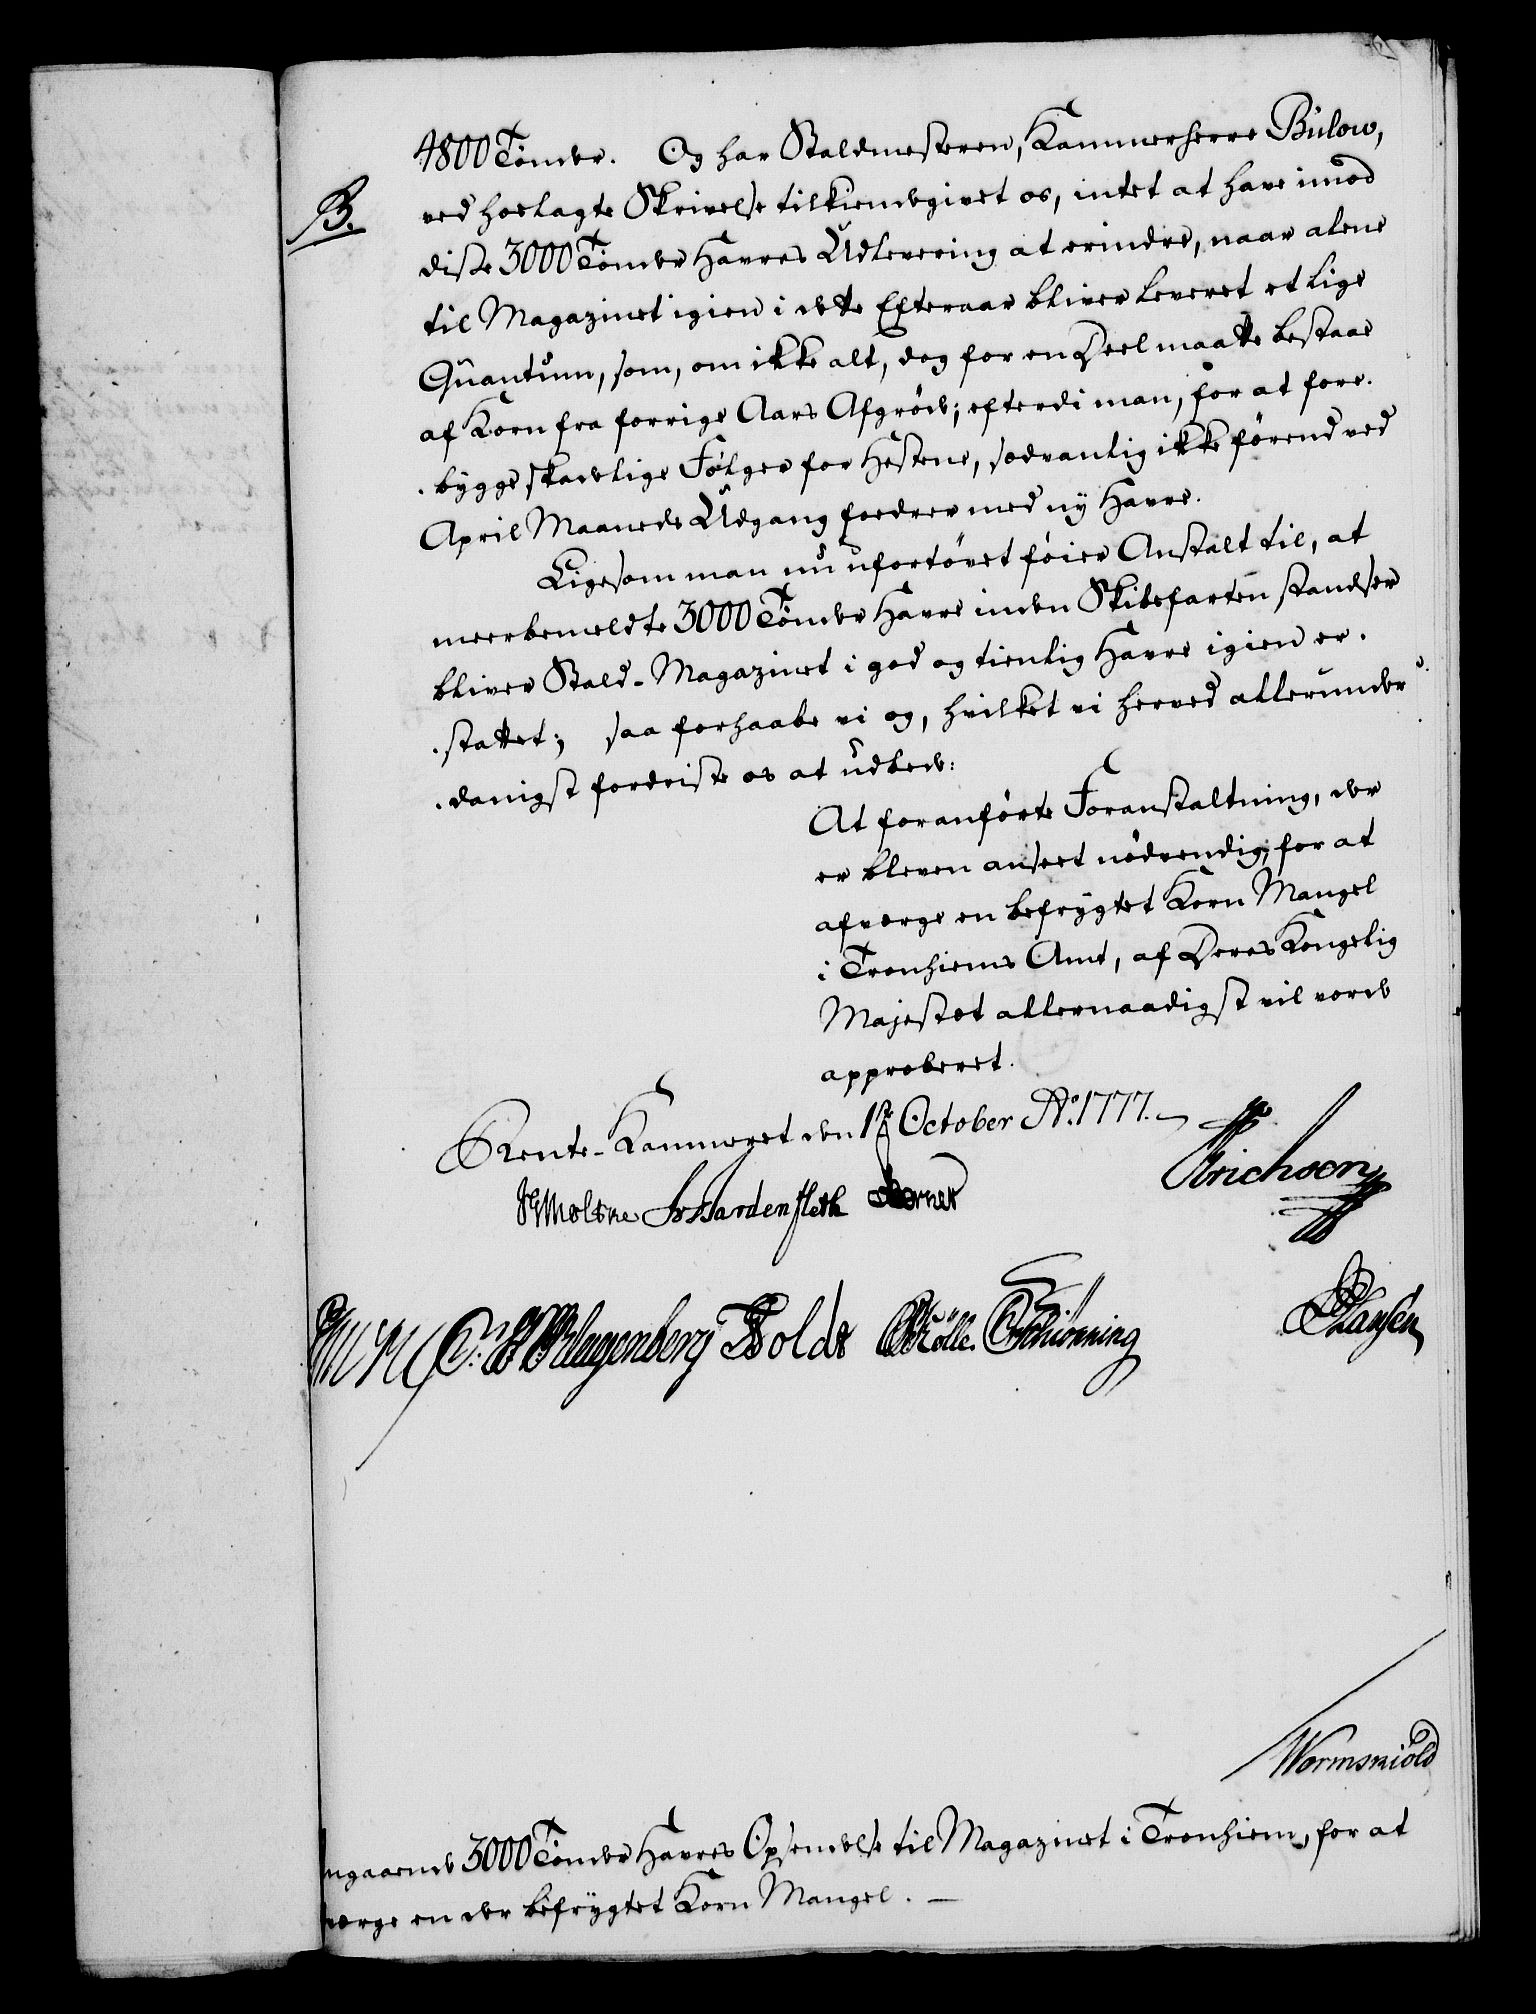 4800 Tönder. Og har Staldmesteren, Kammerherre Bülow,
B.
ved hoslagte Skrivelse tilkiendegivet os, intet at have imod
disse 3000 Tönder Havres Udlevering at erindre, naar alene
til Magazinet igien i dette Efteraar bliver leveret et lige
Quantum, som, om ikke alt, dog for en Deel maatte bestaae
af Korn fra forrige Aars Afgröde; efterdi man, for at fore-
-bygge skadelige Fölger for Hestene, sædvanlig ikke förend ved
April Maaneds Udgang foedrer med ny Havre.
Ligesom man nu ufortövet föier Anstalt til, at
meerbemeldte 3000 Tönder Havre inden Skibsfarten standser
bliver Stald-Magazinet i god og tienlig Havre igien er-
-stattet; saa forhaabe vi og, hvilket vi herved allerunder-
-danigst fordriste os at udbede:
At foranförte Foranstaltning, der
er bleven anseet nödvendig, for at
afværge en befrygtet Korn Mangel
i Tronhiems Amt, af Deres Kongelig
Majestæt allernaadigst vil vorde
approberet.
Rente-Kammeret den October Ao. 1777.
Moltke Hardenfleth Berner Erichsen
Klagenberg Holdt Mölle Schiönning Hansen
Wormskiold
ngaaende 3000 Tönder Havres Opsendelse til Magazinet i Tronhiem, for at
værge en der befrygtet Korn Mangel. —